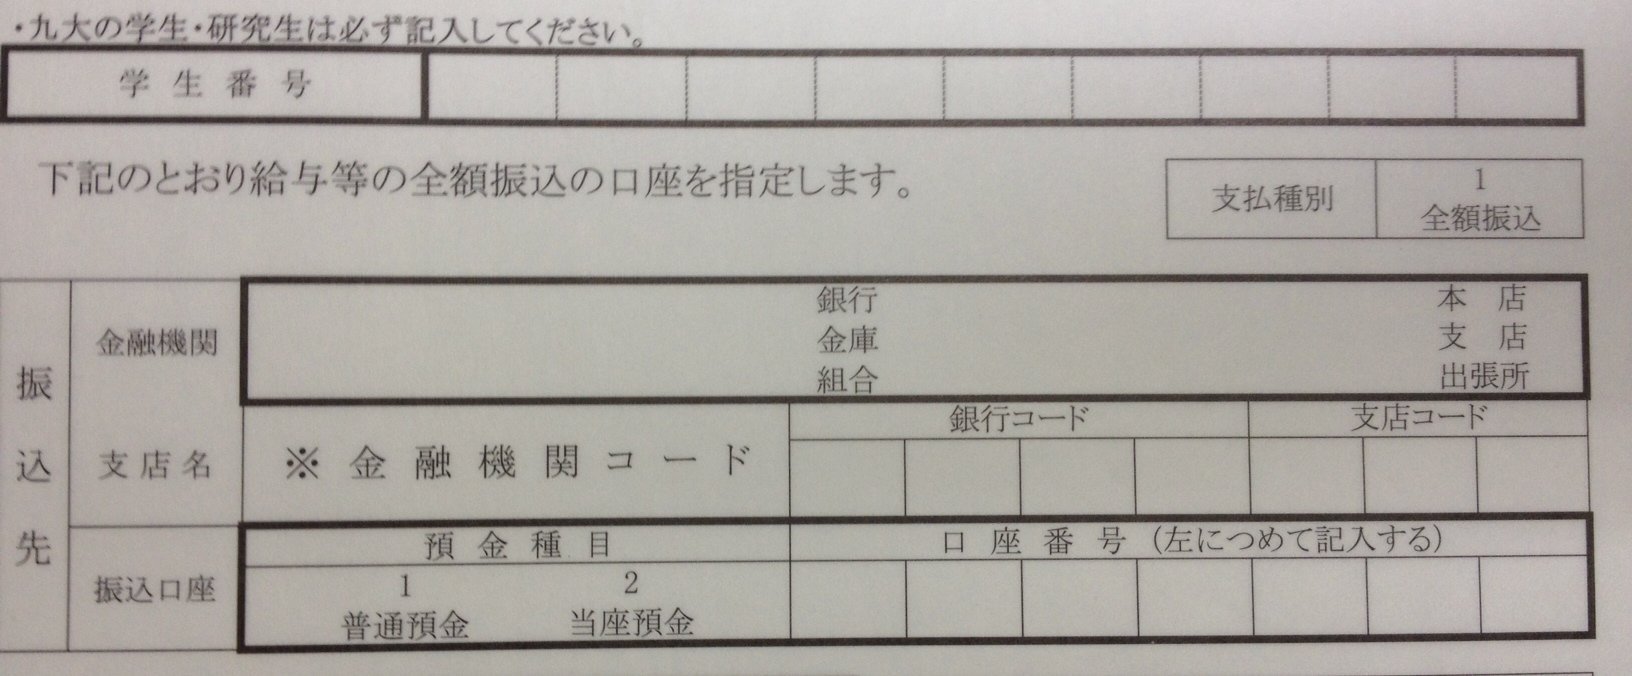 ・九大の学生・研究生は必ず記入してください。
学生番号
下記のとおり給与等の全額振込の口座を指定します。
支払種別
1
全額振込
振込先
金融機関
支店名
銀行
金庫
組合
本店
支店
出張所
※金融機関コード
銀行コード
支店コード
振込口座
預金種目
1
普通預金
2
当座預金
口座番号(左につめて記入する)